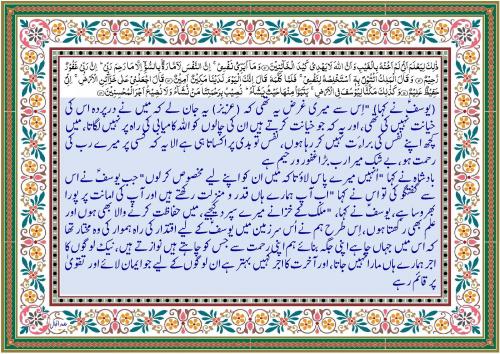 ذٰلِكَ لِيَعْلَمَ اَنِّيْ لَمْ اَخُنْهُ بِالْغَيْبِ وَاَنَّ اللّٰهَ لَا يَهْدِيْ كَيْدَ الْخَآئِنِيْنَ وَمَآ اُبَرِّئُ نَفْسِيْ اِنَّ النَّفْسَ لَاَمَّارَةٌۢ بِالسُّوْٓءِ اِلَّا مَا رَحِمَ رَبِّيْ اِنَّ رَبِّيْ غَفُوْرٌ
رَّحِيْمٌ وَقَالَ الْمَلِكُ ائْتُوْنِيْ بِهٖٓ اَسْتَخْلِصْهُ لِنَفْسِيْ فَلَمَّا كَلَّمَهٗ قَالَ اِنَّكَ الْيَوْمَ لَدَيْنَا مَكِيْنٌ اَمِيْنٌ قَالَ اجْعَلْنِيْ عَلٰى خَزَآئِنِ الْاَرْضِ اِنِّيْ
حَفِيْظٌ عَلِيْمٌ وَكَذٰلِكَ مَكَّنَّا لِيُوْسُفَ فِي الْاَرْضِ يَتَبَوَّاُ مِنْهَا حَيْثُ يَشَآءُ نُصِيْبُ بِرَحْمَتِنَا مَنْ نَّشَآءُ وَلَا نُضِيْعُ اَجْرَ الْمُحْسِنِيْنَ
(یوسفؑ نے کہا) "اِس سے میری غرض یہ تھی کہ (عزیز) یہ جان لے کہ میں نے درپردہ اس کی
خیانت نہیں کی تھی، اور یہ کہ جو خیانت کرتے ہیں ان کی چالوں کو اللہ کامیابی کی راہ پر نہیں لگاتا، میں
کچھ اپنے نفس کی براءت نہیں کر رہا ہوں، نفس تو بدی پر اکساتا ہی ہے الا یہ کہ کسی پر میرے رب کی
رحمت ہو، بے شک میرا رب بڑا غفور و رحیم ہے
بادشاہ نے کہا "اُنہیں میرے پاس لاؤ تاکہ میں ان کو اپنے لیے مخصوص کر لوں" جب یوسفؑ نے اس
سے گفتگو کی تو اس نے کہا "اب آپ ہمارے ہاں قدر و منزلت رکھتے ہیں اور آپ کی امانت پر پورا
بھروسا ہے، یوسفؑ نے کہا، "ملک کے خزانے میرے سپرد کیجیے، میں حفاظت کرنے والا بھی ہوں اور
علم بھی رکھتا ہوں، اِس طرح ہم نے اُس سرزمین میں یوسفؑ کے لیے اقتدار کی راہ ہموار کی وہ مختار تھا
کہ اس میں جہاں چاہے اپنی جگہ بنائے ہم اپنی رحمت سے جس کو چاہتے ہیں نوازتے ہیں، نیک لوگوں کا
اجر ہمارے ہاں مارا نہیں جاتا، اور آخرت کا اجر کہیں بہتر ہے ان لوگوں کے لیے جو ایمان لائے اور تقویٰ
پر قائم رہے